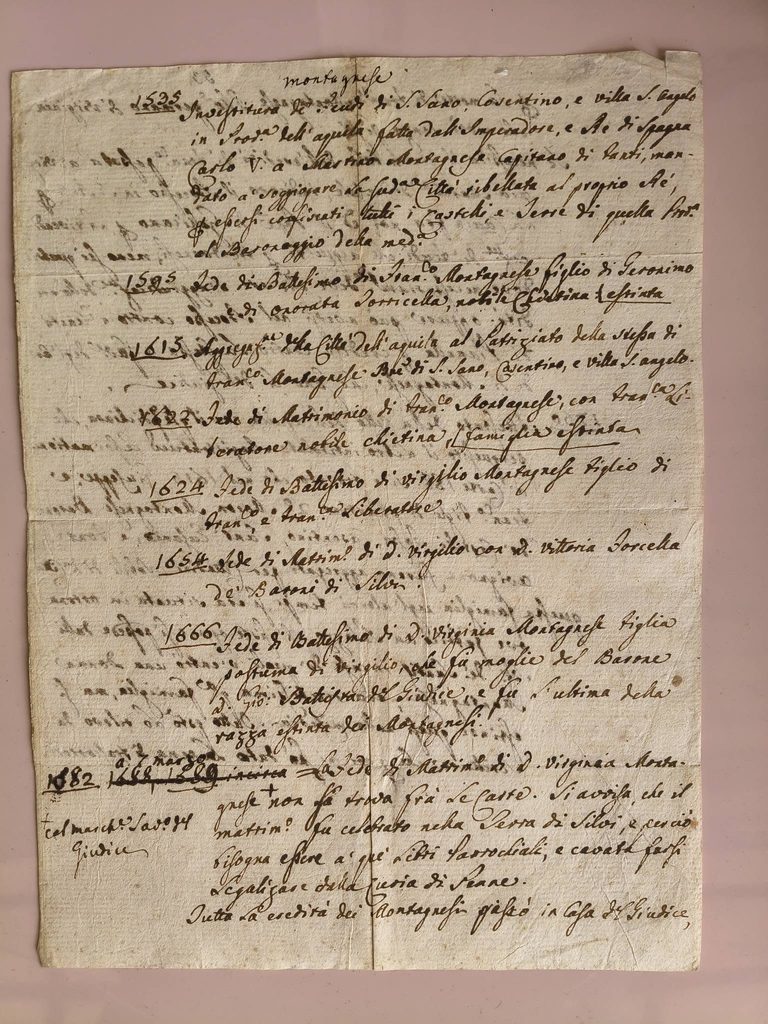 montagnese
1535 Investitura de' Feudi di S. Sano Cosentino, e villa S. Angelo
in Prov.a dell'aquila fatta dall'Imperadore, e Re di Spagna
Carlo V. a Martino Montagnese Capitano, di Fanti, man-
dato a soggiogare la sud.a Città ribellata al proprio Rè,
p essersi confiscati tutti i Castelli, e Terre di quella Prov.a
al Baronaggio della med.a
1595 Fede di Battesimo di Fran.co Montagnese figlio di Geronimo
e di onorata Torricella, nobile Chietina estinta
1615 Aggregaz.ne della Città dell'aquila al Patriziato della stessa di
Fran.co Montagnese B.ne di S. Sano, Cosentino, e villa S. angelo.
1622 Fede di Matrimonio di Fran.co Montagnese, con Fran.ca Li-
beratore nobile chietina, famiglia estinta
1624 Fede di Battesimo di virgilio Montagnese figlio di
Fran.co e Fran.ca Liberatore
1654 Fede di Matrim.o di D. virgilio con D. vittoria Forcella
de' Baroni di Silvi.
1666 Fede di Battesimo di D. Virginia Montagnese figlia
postuma di virgilio, che fù moglie del Barone
D. Gio: Battista del Giudice, e fu l'ultima della
razza estinta dei Montagnesi.
a 7 marzo
1682 1688, 1689 incirca = La Fede di Matrim.o di D. virginia Monta-
gnese + non si trova frà le Carte. Si avvisa, che il
+ col march.e Sav.o del
matrim.o fu celebrato nella Terra di Silvi, e perciò
Giudice
bisogna essere a que' Libri Parrochiali, e cavata farsi
Legalizare dalla Curia di Penne.
Tutta la eredità dei Montagnesi passò in Casa del Giudice,